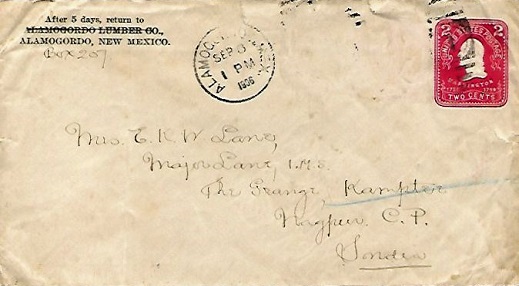 After 5 days, return to
ALAMOGORDO LUMBER CO.,
ALAMOGORDO, NEW MEXICO.
Box 207
ALAMOGORDO N. MEX.
SEP
1 PM
1906
2 UNITED STATES POSTAGE 2
WASHINGTON
TWO CENTS
Mrs. E. K. W. Lane,
Major Lane, I.M.S.
The Grange, Kamptee
Nagpur C. P.
India